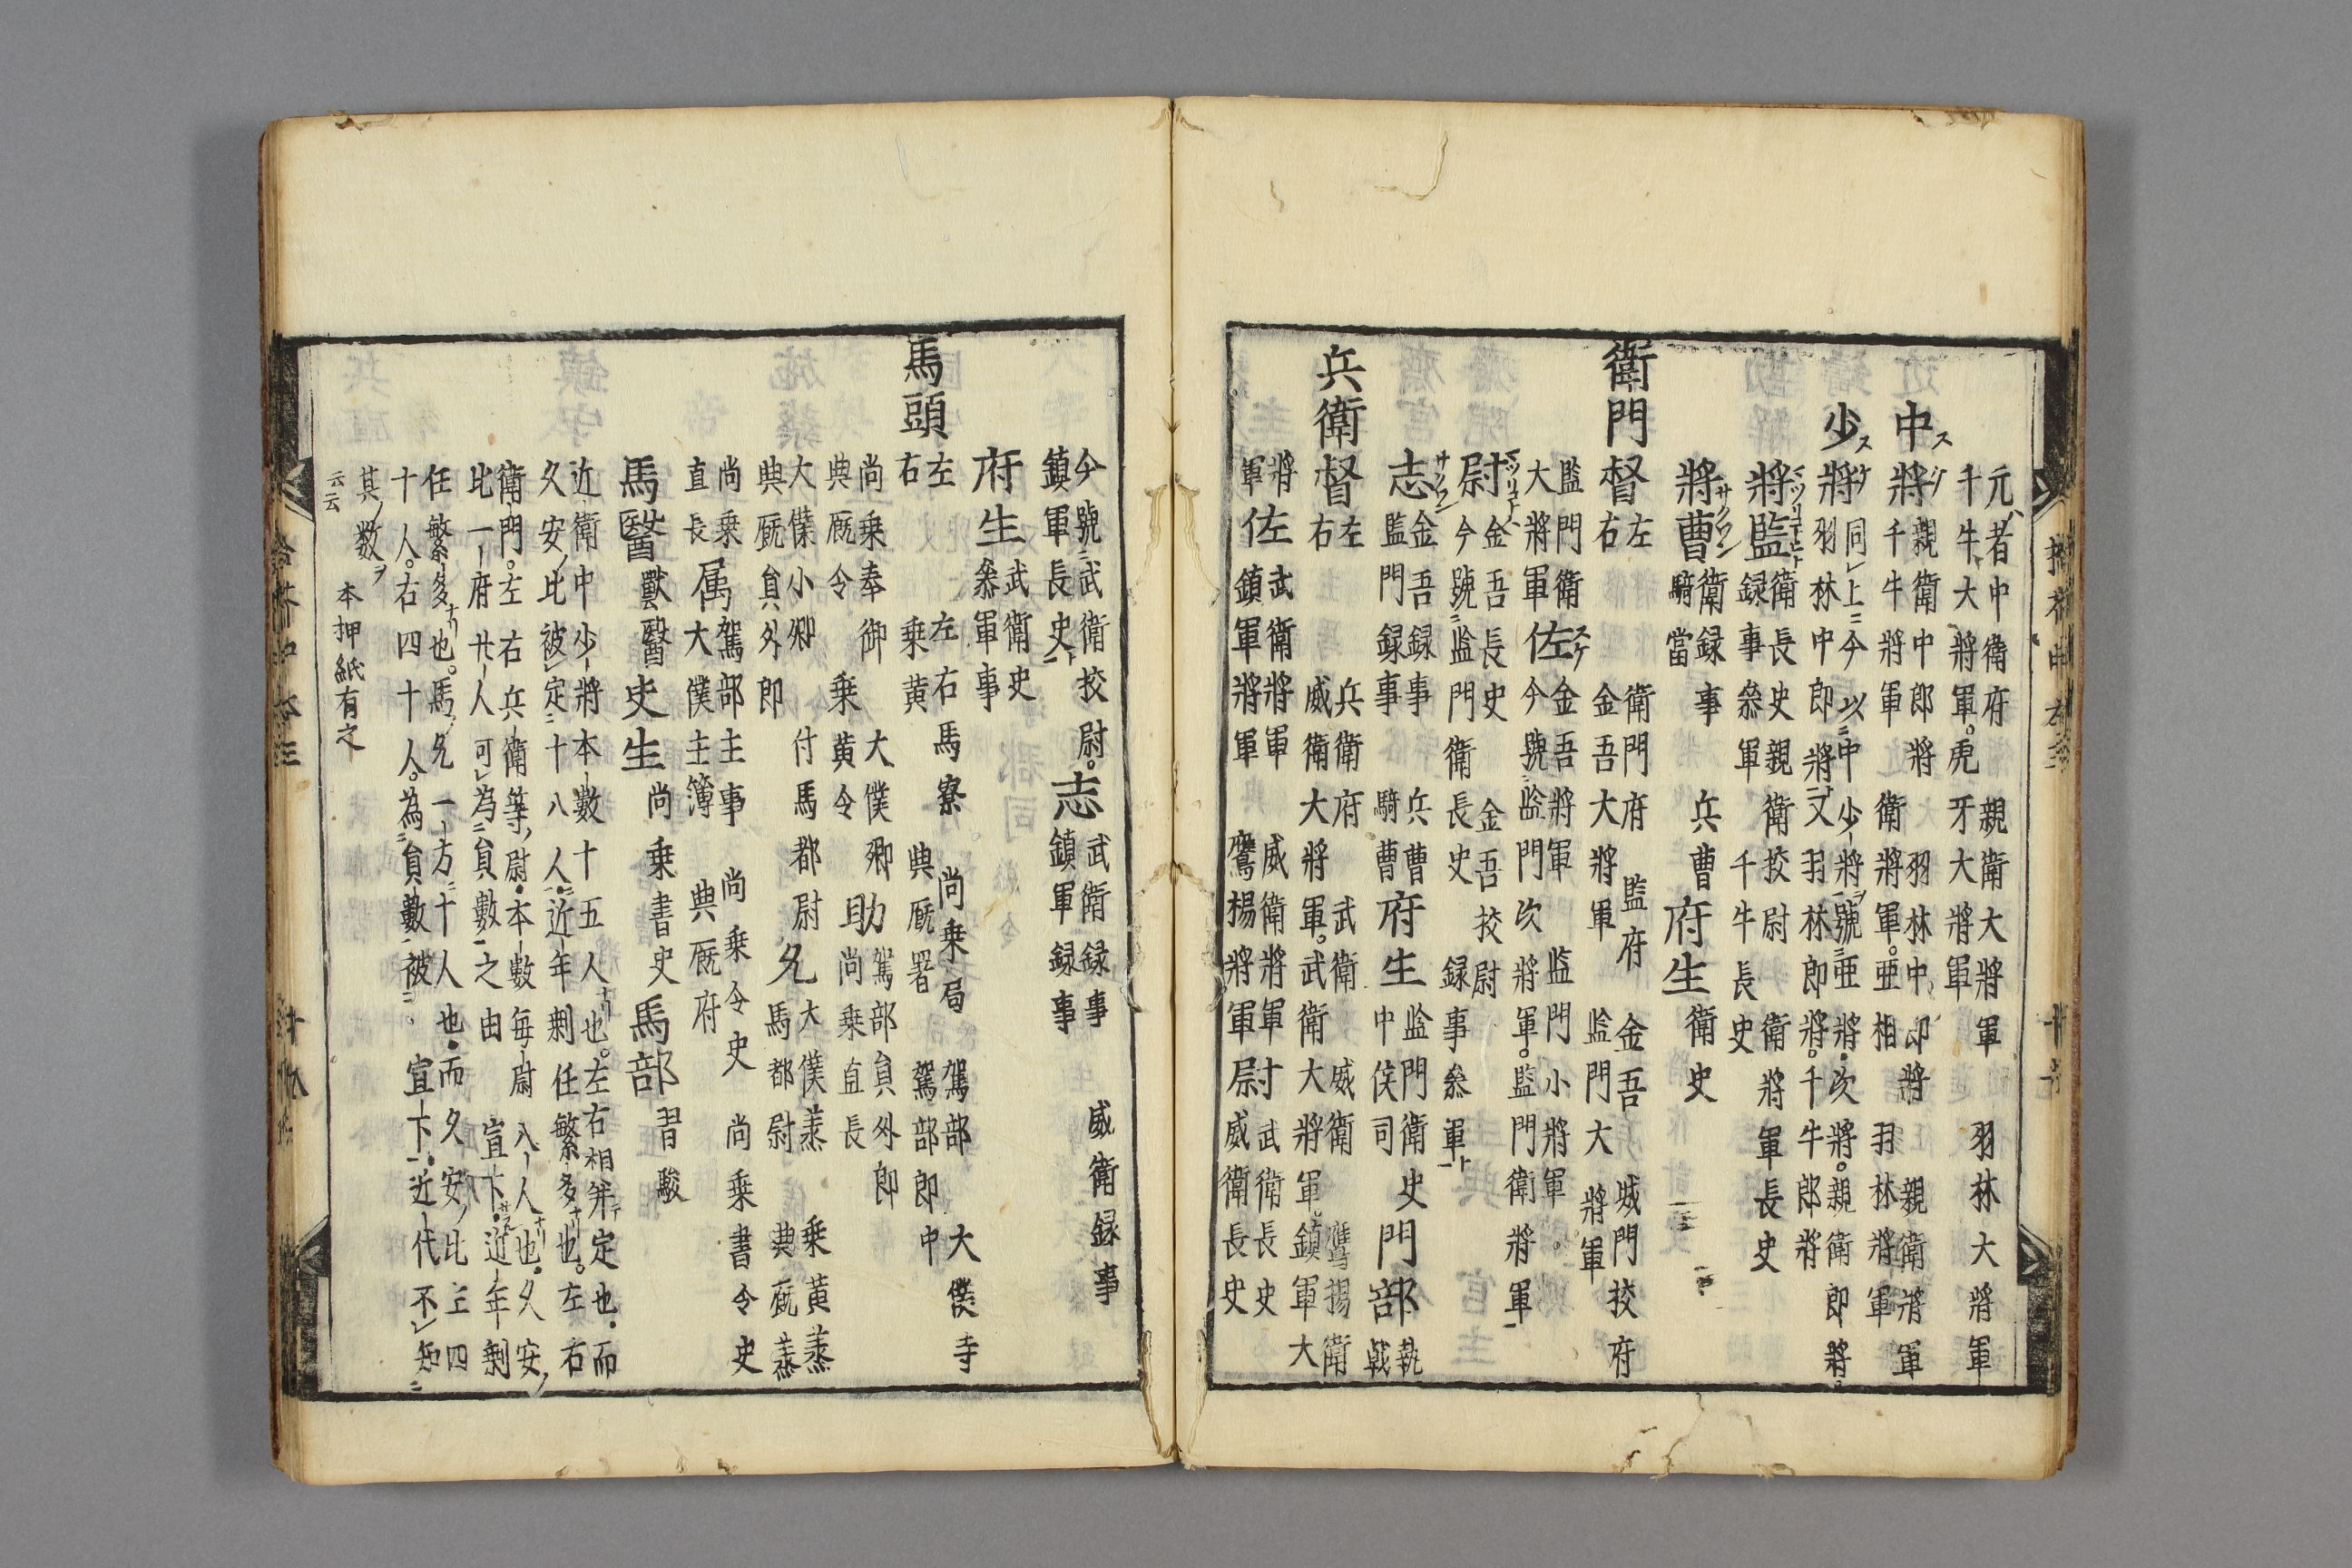 元者中衛府　親衛大將軍　羽林大將軍
千牛大將軍。虎牙大將軍
中將　親衛中郎將　羽林中郎將　親衛將軍
千牛將軍　衛將軍。亞相　羽林將軍
少將　同上ニ今以中少將號亞將・次將。親衛郎將。
羽林中郎將又羽林郎將。千牛郎將
將監　衛長史親衛挍尉　衛將軍長史
録事叅軍　千牛長史
將曹　衛録事　兵曹　府生　衛史
騎當
衛門督　左　衛門府　監府　金吾　城門挍府
右　金吾大將軍　監門大將軍
監門衛　佐　金吾將軍　監門小將軍
大將軍　今號監門次將軍。監門衛將軍
尉　金吾長史　金吾挍尉
今號監門衛長史　録事叅軍
志　金吾録事　兵曹　府生　監門衛史　門部　執
監門録事　騎曹　中候司　戟
兵衛督　左　兵衛府　武衛　威衛　鷹揚衛
右　威衛大將軍。武衛大將軍。鎮軍大
將　佐　武衛將軍　威衛將軍　尉　武衛長史
軍　鎮軍將軍　鷹揚將軍　威衛長史
今號武衛挍尉。志　武衛録事　威衛録事
鎮軍長史　鎮軍録事
府生　武衛史
叅軍事
馬頭　左　左右馬寮　尚乗局　駕部　大僕寺
右　乗黄　典廐署　駕部郎中
尚乗奉御　大僕卿　助　駕部員外郎
典廐令　乗黄令　尚乗直長
大僕小卿　付馬都尉　允　大僕丞　乗黄丞
典廐員外郎　馬都尉　典廐丞
尚乗　属　駕部主事　尚乗令史　尚乗書令史
直長　大僕主簿　典廐府
馬醫　獸醫　史生　尚乗書史　馬部　習馭
近衛中少將本數十五人也。左右相并定也・而
久安比被定十八人・近年剰任繁多也。左右
衛門。左右兵衛等尉・本數毎尉八人也・久安
比一府廿人可為員數之由宣下・近年剰
任繁多也。馬允一方十人也・而久安比三四
十人。右四十人。為員數被宣下・近代不知
其数ヲ　本押紙有之
云云